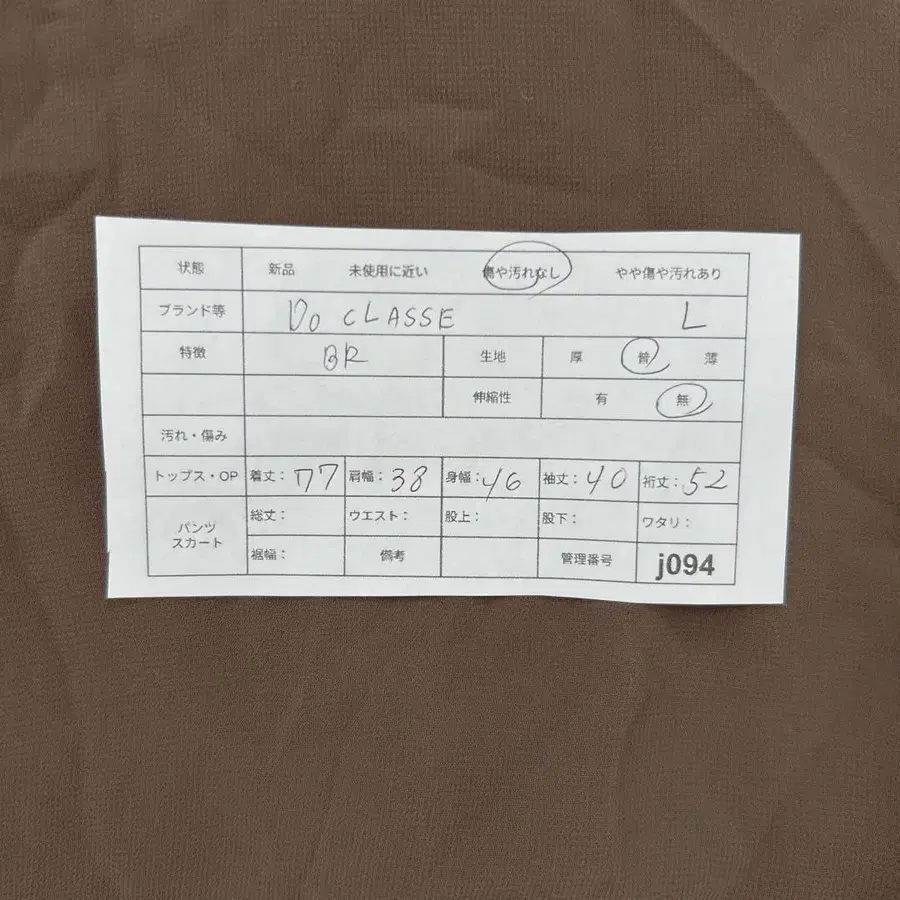 状態 新品 未使用に近い 傷や汚れなし やや傷や汚れあり
ブランド等 DO CLASSE L
特徴 BR 生地 厚 普 薄
伸縮性 有 無
汚れ・傷み
トップス・OP 着丈: 77 肩幅: 38 身幅: 46 袖丈: 40 裄丈: 52
パンツ 総丈: ウエスト: 股上: 股下: ワタリ:
スカート 裾幅: 備考 管理番号 j094